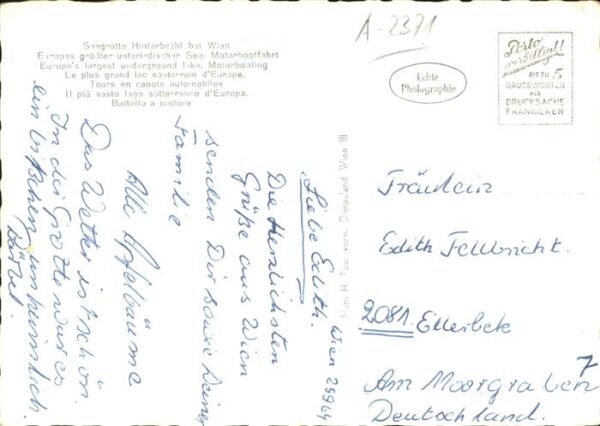 A-2371
Seegrotte Hinterbrühl bei Wien
Europas größter unterirdischer See. Motorbootfahrt
Europe's largest underground lake. Motorboating
Le plus grand lac souterrain d'Europe.
Tours en canots automobiles
Il piú vasto lago sotterraneo d'Europa.
Battello a motore
Echte
Photographie
Porto
verbilligt!
BIS ZU 5
GRUSSWORTEN
ALS
DRUCKSACHE
FRANKIEREN
Wien
Liebe Edith.
Die Herzlichsten
Grüße aus Wien
senden Dir sowie Deiner
Familie
Alle Apfelbäume
Das Wetter ist schön.
In der Grotte war es
ein bißchen unheimlich.
Donauland Wien III
Fräulein
Edith Fellbricht.
2081 Ellerbek
Am Moorgraben 7
Deutschland.